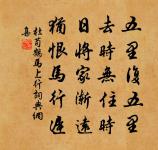 五里復五里
去時無住時
日將家漸遠
猶恨馬行遲
杜荀鶴馬上行詞典網